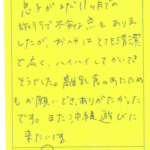 息子がまだ11ヶ月での
旅行で不安な点もありま
したが、お部屋はとても清潔
で広く、ハイハイしてかいてき
そうでした。離乳食のあたため
もお願いでき、ありがたかった
です。また沖縄遊びに
来たいです